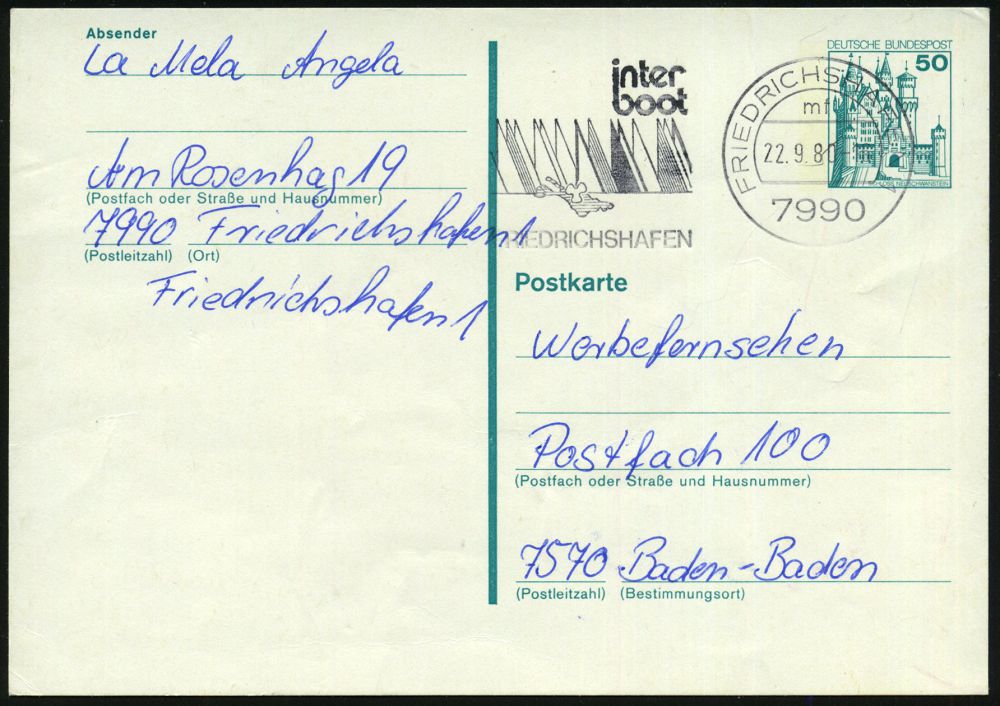 Absender
La Mela Angela
Am Rosenhag 19
(Postfach oder Straße und Hausnummer)
7990 Friedrichshafen 1
(Postleitzahl) (Ort)
Friedrichshafen 1
inter
boot
FRIEDRICHSHAFEN
FRIEDRICHSHAFEN
mf
22.9.80
7990
DEUTSCHE BUNDESPOST
50
SCHLOSS NEUSCHWANSTEIN
Postkarte
Werbefernsehen
Postfach 100
(Postfach oder Straße und Hausnummer)
7570 Baden-Baden
(Postleitzahl) (Bestimmungsort)